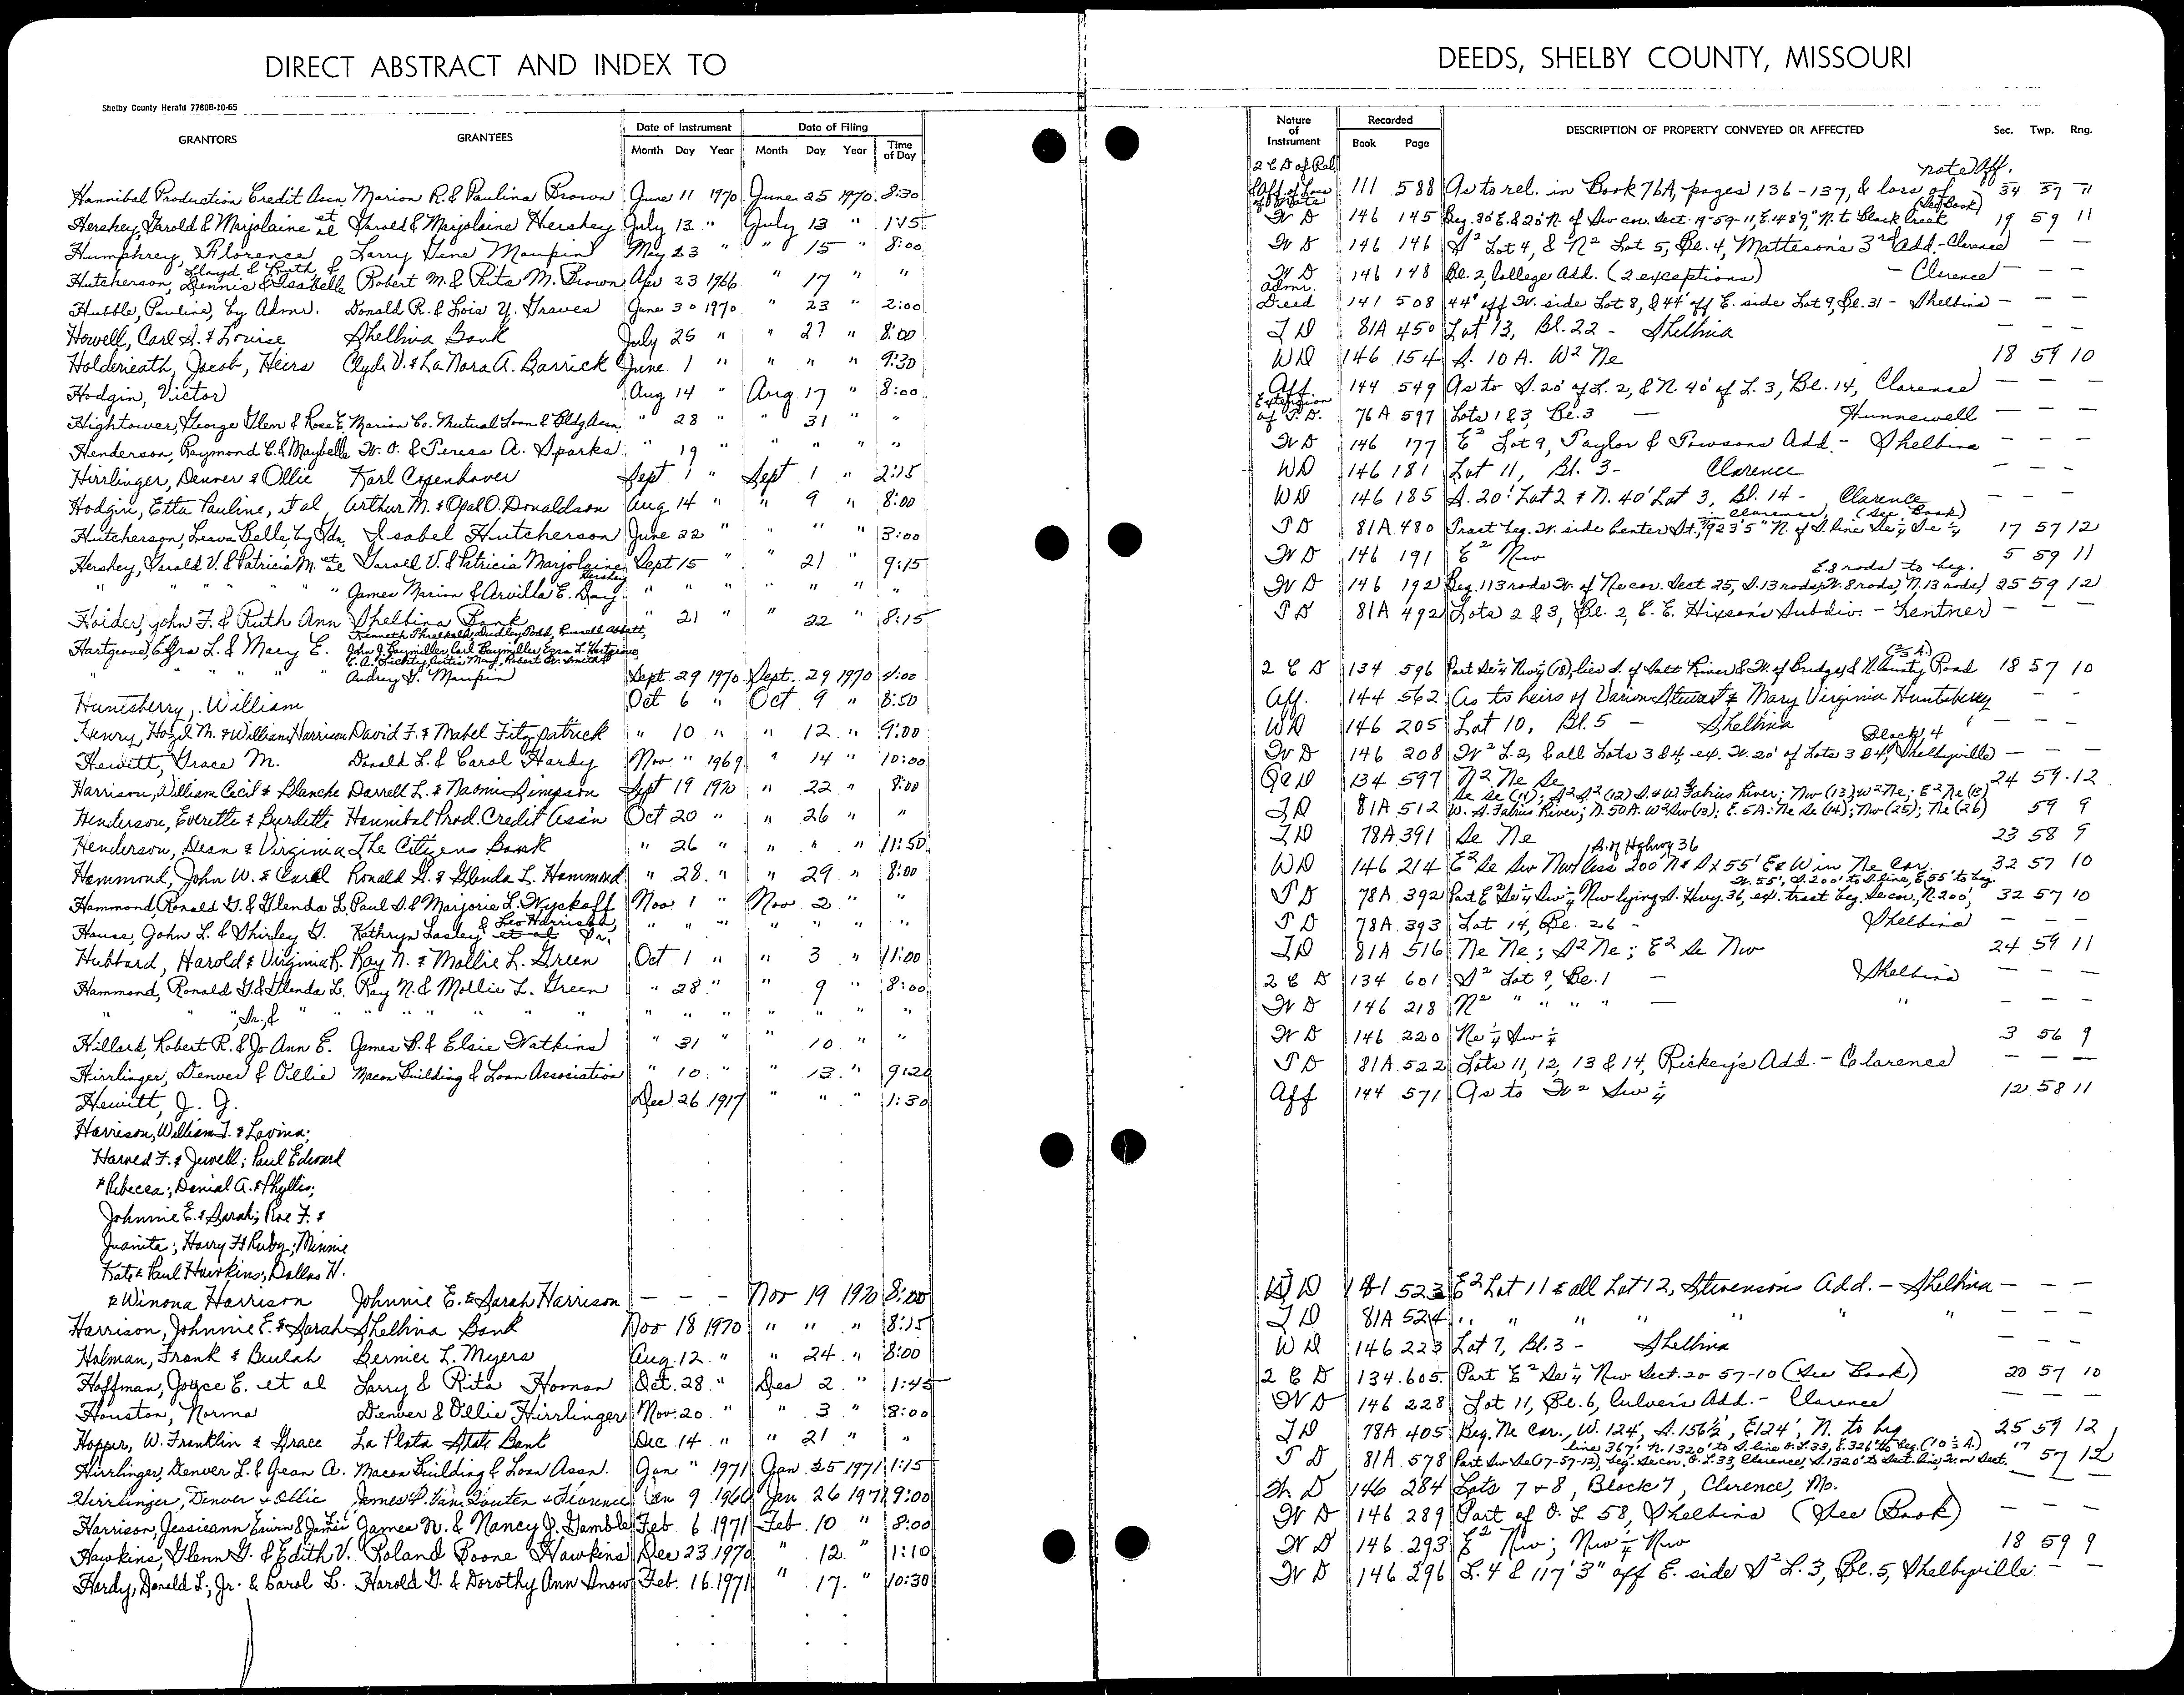 DIRECT ABSTRACT AND INDEX TO DEEDS, SHELBY COUNTY, MISSOURI
Shelby County Herald 7780B-10-65
GRANTORS GRANTEES Date of Instrument Month Day Year Date of Filing Month Day Year Time of Day Nature of Instrument Recorded Book Page DESCRIPTION OF PROPERTY CONVEYED OR AFFECTED Sec. Twp. Rng.
Hannibal Production Credit Assn Marion R. & Paulina Brown June 11 1970 June 25 1970 8:30 2 C D of Rel & Aff. of Loss of Note 111 588 As to rel. in Book 76A, pages 136-137, & loss of note Aff. (See Book) 34 57 11
Hershey, Harold & Marjolaine et al Harold & Marjolaine Hershey July 13 " July 13 " 1:15 W D 146 145 Beg. 30' E. & 20' N. of Sw cor. Sect. 19-59-11, E. 148'9" N. to Black Creek 19 59 11
Humphrey, Florence Larry Gene Maupin May 23 " 15 " 8:00 W D 146 146 S² Lot 4, & N² Lot 5, Bl. 4, Matteson's 3rd Add - Clarence — —
Hutcherson, Lloyd & Ruth, & Dennis & Isabelle Robert M. & Rita M. Brown Apr 23 1966 " 17 " " W D 146 148 Bl. 2, College Add. (2 exceptions) - Clarence — — —
Hubble, Pauline, by Admr. Donald R. & Lois Y. Graves June 30 1970 " 23 " 2:00 Admr. Deed 141 508 44' off W. side Lot 8, & 44' off E. side Lot 9, Bl. 31 - Shelbina — — —
Howell, Carl S. & Louise Shelbina Bank July 25 " " 27 " 8:00 T D 81A 450 Lot 13, Bl. 22 - Shelbina — — —
Holderieath, Jacob, Heirs Clyde V. & LaNora A. Barrick June 1 " " " " 9:30 WD 146 154 S. 10 A. W² Ne 18 59 10
Hodgin, Victor Aug 14 " Aug 17 " 8:00 Aff 144 549 As to S. 20' of L. 2, & N. 40' of L. 3, Bl. 14, Clarence — — —
Hightower, George Glen & Rose E. Marion Co. Mutual Loan & Bldg Assn " 28 " " 31 " " Extension of T. D. 76A 597 Lots 1 & 3, Bl. 3 — Hunnewell — — —
Henderson, Raymond C. & Maybelle W. O. & Teresa A. Sparks " 19 " " " " " W D 146 177 E² Lot 9, Taylor & Towsons Add. - Shelbina — — —
Hirrlinger, Denver & Ollie Karl Copenhaver Sept 1 " Sept 1 " 2:15 WD 146 181 Lot 11, Bl. 3 - Clarence — — —
Hodgin, Etta Pauline, et al Arthur M. & Opal O. Donaldson Aug 14 " " 9 " 8:00 WD 146 185 S. 20' Lot 2 & N. 40' Lot 3, Bl. 14 - Clarence — — —
Hutcherson, Leava Belle, by Gdn. Isabel Hutcherson June 22 " " " " 3:00 T D 81A 480 Tract beg. W. side Center St., 923'5" N. of S. line Se¼ Se¼ Clarence, (See Book) 17 57 12
Hershey, Harold V. & Patricia M. et al Harold V. & Patricia Marjolaine Hershey Sept 15 " " 21 " 9:15 W D 146 191 E² Nw 5 59 11
" " " " James Marion & Arvilla E. Day " " " " " " " W D 146 192 Beg. 113 rods W. of Ne cor. Sect 25, S. 13 rods, W. 8 rods, N. 13 rods, E. 8 rods to beg. 25 59 12
Hoider, John F. & Ruth Ann Shelbina Bank " 21 " " 22 " 8:15 T D 81A 492 Lots 2 & 3, Bl. 2, E. E. Hixson's Subdiv. - Lentner — — —
Hartgrove, Ezra L. & Mary E. Kenneth Threlkeld, Dudley Todd, Russell Abbett,
John J. Baymiller, Carl Baymiller, Ezra L. Hartgrove,
" " " " Audrey G. Maupin Sept 29 1970 Sept. 29 1970 4:00 2 C D 134 596 Part Se¼ Nw¼ (18), lies S. of Salt River & W. of Bridge & N. County Road 18 57 10
Huntsberry, William Oct 6 " Oct. 9 " 8:50 Aff. 144 562 As to heirs of Varion Stewart & Mary Virginia Huntsberry — —
Henry, Hazel M. & William Harrison David F. & Mabel Fitzpatrick " 10 " " 12 " 9:00 WD 146 205 Lot 10, Bl. 5 - Shelbina — — —
Hewitt, Grace M. Donald L. & Carol Hardy Nov " 1969 " 14 " 10:00 W D 146 208 W² L. 2, & all Lots 3 & 4, ex. W. 20' of Lots 3 & 4, Block 4 Shelbyville — — —
Harrison, William Cecil & Blanche Darrell L. & Naomi Simpson Sept 19 1970 " 22 " 8:00 QCD 134 597 N² Ne Se 24 59 12
Henderson, Everette & Burdette Hannibal Prod. Credit Ass'n Oct 20 " " 26 " " T D 81A 512 Se Se (11); S² S² (12) S. & W. Fabius River; Nw (13); W² Ne; E² Ne (13) W. S. Fabius River; N. 50 A. W² Sw (13); E. 5 A. Ne Se (14); Nw (25); Ne (26) 59 9
Henderson, Dean & Virginia The Citizens Bank " 26 " " " " 11:50 T D 78A 391 Se Ne 23 58 9
Hammond, John W. & Carol Ronald G. & Glenda L. Hammond " 28 " " 29 " 8:00 WD 146 214 E² Se Sw Nw less 200' N & S x 55' E & W in Ne Cor. S. of Hghwy 36 32 57 10
Hammond, Ronald G. & Glenda L. Paul D. & Marjorie L. Wyckoff Nov 1 " Nov. 2 " " T D 78A 392 Part E² Se¼ Sw¼ Nw lying S. Hwy. 36, ex. tract beg. Se cor., N. 200', W. 55', S. 200' to S. line, E. 55' to beg. 32 57 10
House, John L. & Shirley G. Kathryn Lasley et al & Leo Harrison, Tr. " " " " " " " T D 78A 393 Lot 14, Bl. 26 - Shelbina — — —
Hubbard, Harold & Virginia R. Ray N. & Mollie L. Green Oct 1 " " 3 " 11:00 T D 81A 516 Ne Ne; S² Ne; E² Se Nw 24 59 11
Hammond, Ronald G. & Glenda L. Ray N. & Mollie L. Green " 28 " " 9 " 8:00 2 C D 134 601 S² Lot 9, Bl. 1 — Shelbina — — —
" " " " " " " " " " " " " " " W D 146 218 N² " " " " — " — — —
Hillard, Robert R., Sr., & Jo Ann E. James B. & Elsie Watkins " 31 " " 10 " " W D 146 220 Ne¼ Sw¼ 3 56 9
Hirrlinger, Denver & Ollie Macon Building & Loan Association " 10 " " 13 " 9:20 T D 81A 522 Lots 11, 12, 13 & 14, Rickey's Add. - Clarence — — —
Hewitt, J. G. Dec 26 1917 " " " 1:30 Aff 144 571 As to W² Sw¼ 12 58 11
Harrison, William T. & Lavina;
Harved F. & Jewell; Paul Edward
& Rebecca; Denial A. & Phyllis;
Johnnie E. & Sarah; Roe F. &
Juanita; Harry H & Ruby; Minnie
Kate & Paul Hawkins; Dallas H.
& Winona Harrison Johnnie E. & Sarah Harrison — — — Nov 19 1970 8:00 W D 181 523 E² Lot 11 & all Lot 12, Stevensons Add. - Shelbina — — —
Harrison, Johnnie E. & Sarah Shelbina Bank Nov 18 1970 " " " 8:15 T D 81A 524 " " " " " " — — —
Holman, Frank & Beulah Bernice L. Myers Aug. 12 " " 24 " 8:00 WD 146 223 Lot 7, Bl. 3 - Shelbina — — —
Hoffman, Joyce E. et al Larry & Rita Homan Oct. 28 " Dec 2 " 1:45 2 C D 134 605 Part E² Se¼ Nw Sect. 20 57-10 (See Book) 20 57 10
Houston, Norma Denver & Ollie Hirrlinger Nov. 20 " " 3 " 8:00 W D 146 228 Lot 11, Bl. 6, Culver's Add. - Clarence — — —
Hopper, W. Franklin & Grace La Plata State Bank Dec 14 " " 21 " " T D 78A 405 Beg. Ne Cor., W. 124', S. 156½', E 124', N. to beg 25 59 12
Hirrlinger, Denver L. & Jean A. Macon Building & Loan Assn. Jan " 1971 Jan. 25 1971 1:15 T D 81A 578 Part Sw Se (17-57-12), beg. Se cor. O. L. 33, Clarence, S. 1320' to Sect. line, W. on Sect. line 367', N. 1320' to S. line O. L. 33, E. 326' to beg. (10½ A.) 17 57 12
Hirrlinger, Denver & Ollie James P. Van Houten & Florence Jan 9 1960 Jan. 26 1971 9:00 W D 146 284 Lots 7 & 8, Block 7, Clarence, Mo. — — —
Harrison, Jessieann James N. & Nancy J. Gamble Feb. 6 1971 Feb. 10 " 8:00 W D 146 289 Part of O. L 58, Shelbina (See Book) — — —
Hawkins, Glenn G. & Edith V. Roland Boone Hawkins Dec 23 1970 " 12 " 1:10 W D 146 293 E² Nw; Nw¼ Nw 18 59 9
Hardy, Donald L., Jr. & Carol L. Harold G. & Dorothy Ann Snow Feb. 16 1971 " 17 " 10:30 W D 146 296 L. 4 & 117'3" off E. side S² L. 3, Bl. 5, Shelbyville — —